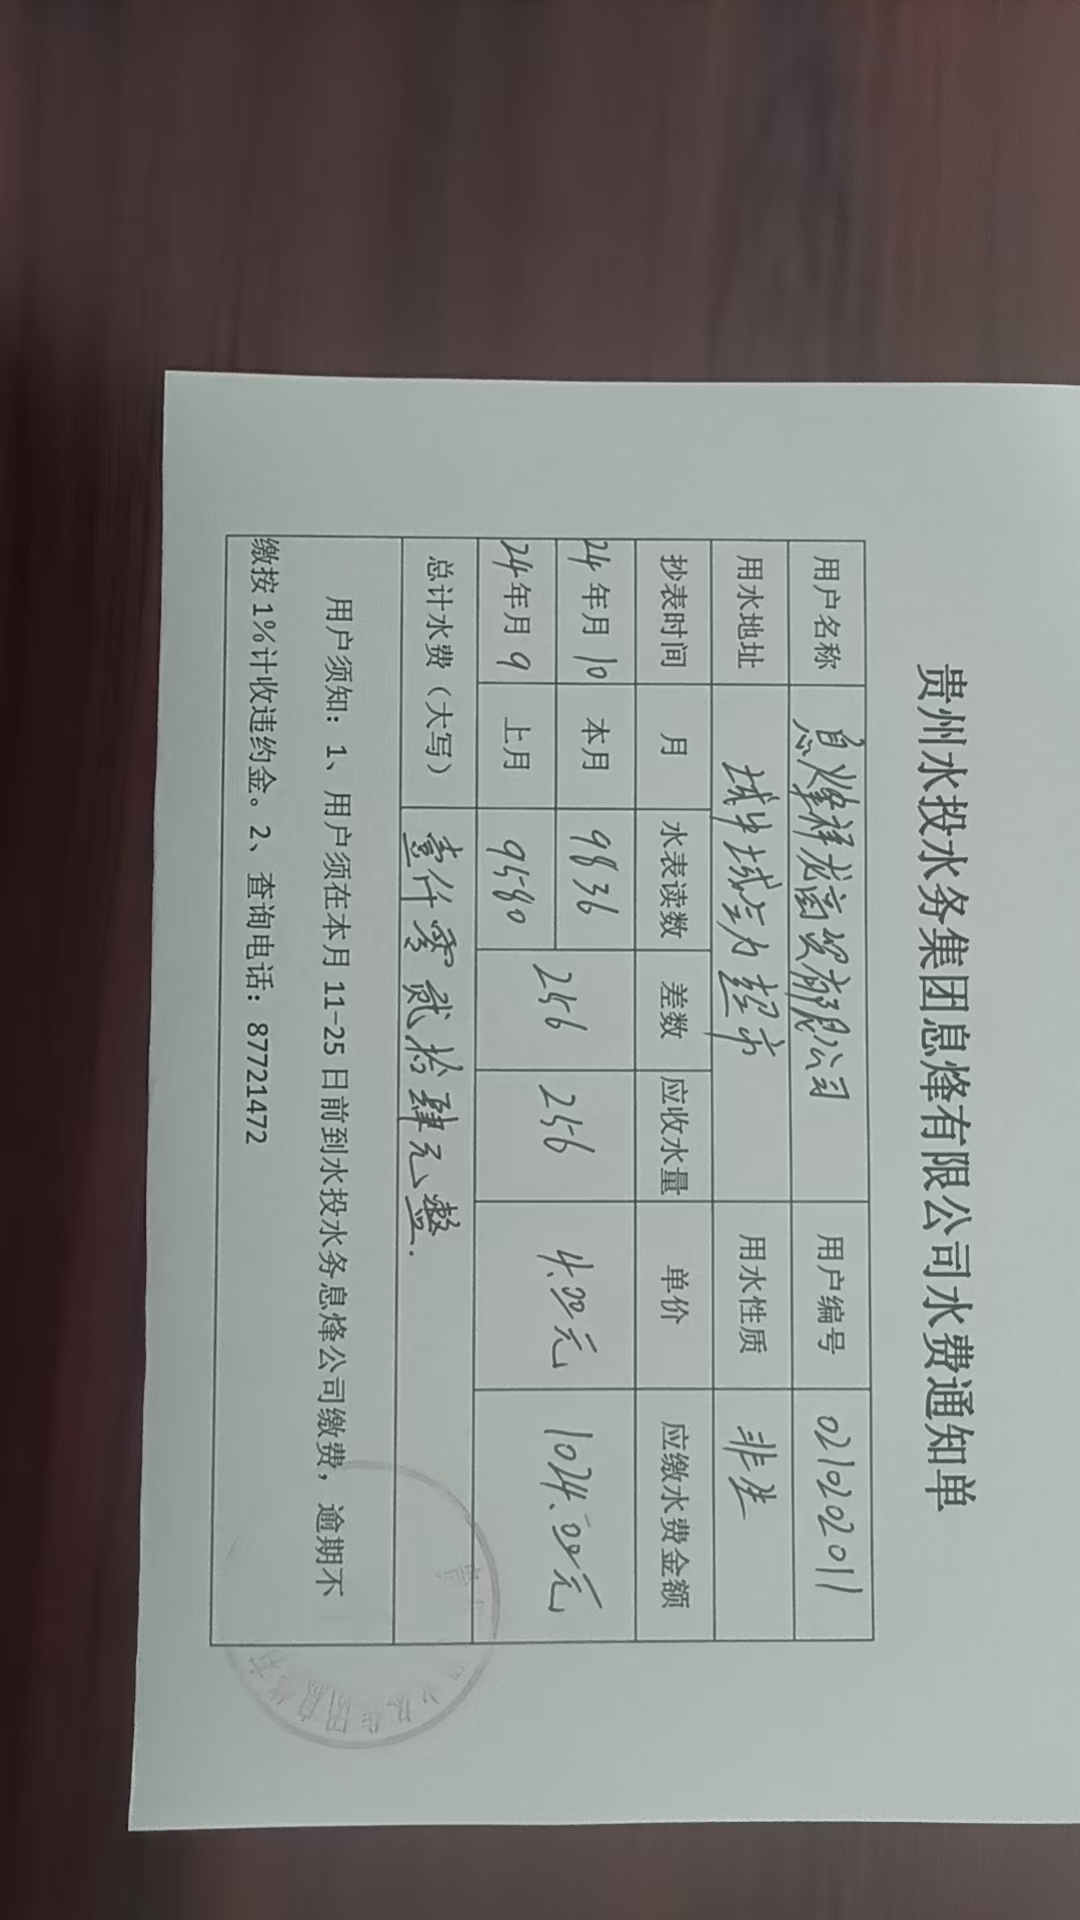 贵州水投水务集团息烽有限公司水费通知单
用户名称 息烽祥龙商贸有限公司 用户编号 021020201​1
用水地址 城中城合力超市 用水性质 非生
抄表时间 月 水表读数 差数 应收水量 单价 应缴水费金额
24年月10 本月 9836 256 256 4.00元 1024.00元
24年月9 上月 9580
总计水费（大写） 壹仟零贰拾肆元整.
用户须知：1、用户须在本月11-25日前到水投水务息烽公司缴费，逾期不
缴按1%计收违约金。2、查询电话：87721472